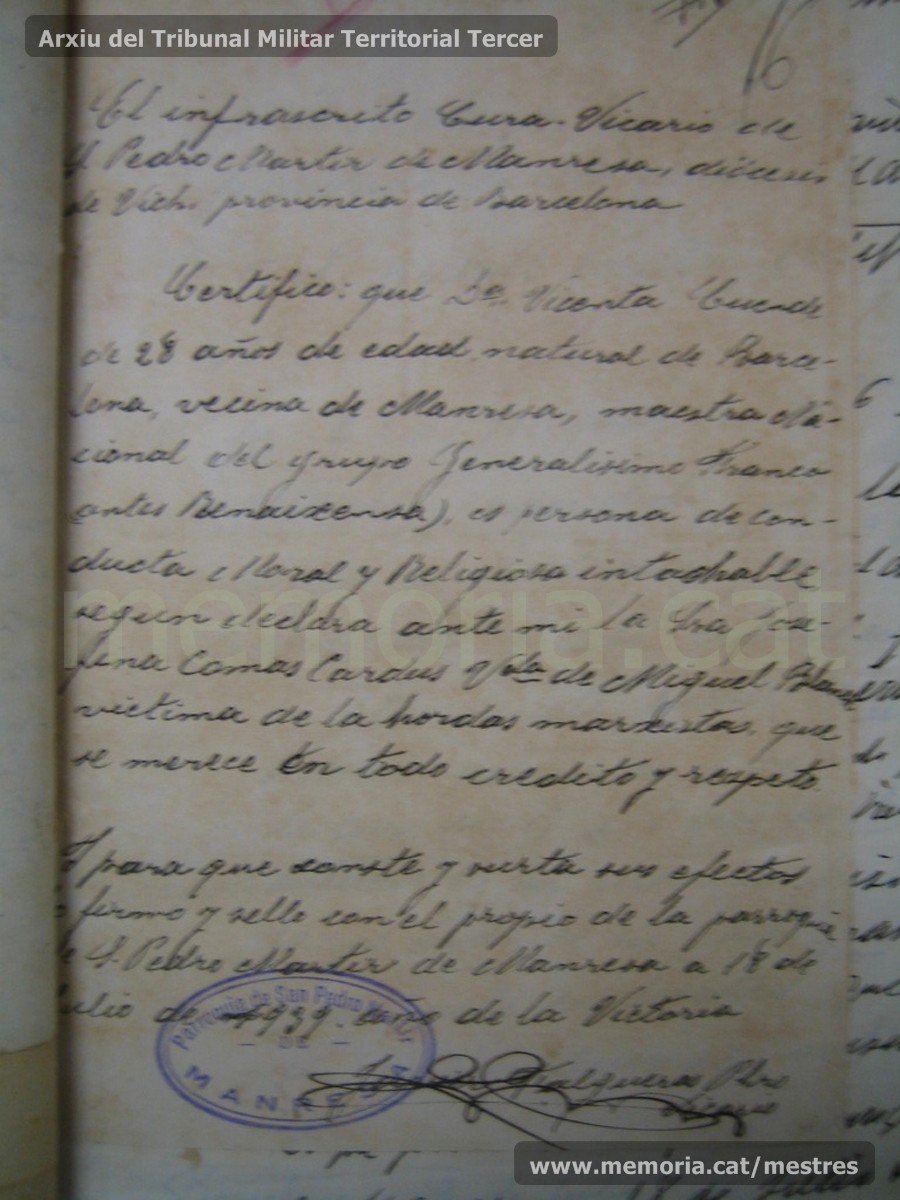 Arxiu del Tribunal Militar Territorial Tercer
El infrascrito Cura-Vicario de
S. Pedro Martir de Manresa, diócesis
de Vich, provincia de Barcelona
Certifico: que Da. Vicenta Cuende
de 28 años de edad, natural de Barce-
lona, vecina de Manresa, maestra Na-
cional del grupo Generalisimo Franco
(antes Renaixensa), es persona de con-
ducta Moral y Religiosa intachable
segun declara ante mi la Sra Jose-
fina Comas Cardus Vda de Miguel
victima de la hordas marxistas, que
se merece en todo credito y respeto.
Y para que conste y surta sus efectos
lo firmo y sello con el propio de la parroquia
de S. Pedro Martir de Manresa a 18 de
Julio de 1939. año de la Victoria
Falgueras Pbro
Vicario
Parroquia de San Pedro Mártir
- DE -
MANRESA
memoria.cat
www.memoria.cat/mestres